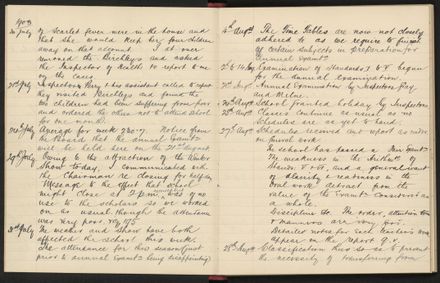 1903
of Scarlet fever were in the house and
that she would keep her four children
away on that account. I at once
removed the Birchleys and asked
the Inspector of Health to report to me
on the cases.
Inspectors Perry & his assistant called to report
they visited Birchleys and found
two children had been suffering from fever
and ordered the others not to attend school
for one month.
July Average for week 230.7. Notice from
the Board that the annual Exam
will be held here on the 21st August
29th July Owing to the attraction of the Winter
Show today, I communicated with
the Chairman re closing for half day
Message to the effect that school
might close at 2 p.m. was of no
use to the scholars so we worked
on as usual though the attendance
was very poor, viz 175
31st July The weather and Show have both
affected the school this week
the attendance for this season (just
prior to annual Exam) being disappointing
4th Augt The Time Tables are now not closely
adhered to as we require to finish
of certain subjects in preparation for
Annual Exam
Examination of Standards I to V begun
for the annual examination
Annual Examination by Inspectors Fay
and Milne.
School granted holiday by Inspectors
25th Augt Classes continue as usual as no
Schedules are as yet to hand.
27th Augt Schedules received but report as under
in full
The school has passed a fair Exam
The weakness in the Arith of
Stands IV & V, and a general want
of clearness & readiness in the
oral work, detract from the
value of the Exam considered as
a whole.
Discipline etc. The order, attention, tone
& manners are very good.
Detailed notes for each Standard now
appear on the report q.v.
28th Augt Classification this so as to prevent
the necessity of transferring from